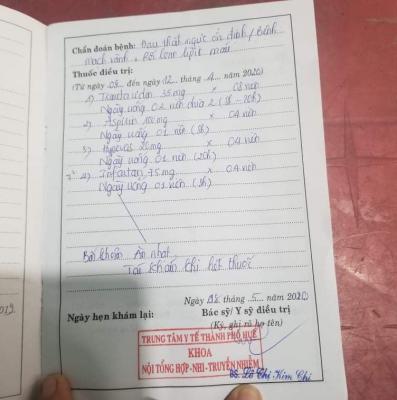 Chẩn đoán bệnh: Đau thắt ngực ổn định / Bệnh
mạch vành + RL lipit máu
Thuốc điều trị:
(Từ ngày 08 đến ngày 12 tháng 4 năm 2020)
1) 35mg x 08 viên
Ngày uống 02 viên chia 2 (8h - 20h)
2) Aspirin 100mg x 04 viên
Ngày uống 01 viên (8h)
3) 20mg x 04 viên
Ngày uống 01 viên (20h)
4) 75mg x 04 viên
Ngày uống 01 viên (8h)
Bốn khoản
Tái khám khi hết thuốc
Ngày 08 tháng 5 năm 2020
Ngày hẹn khám lại: Bác sỹ/ Y sỹ điều trị
(Ký, ghi rõ họ tên)
TRUNG TÂM Y TẾ THÀNH PHỐ HUẾ
KHOA
NỘI TỔNG HỢP-NHI-TRUYỀN NHIỄM
BS. Lê Thị Kim Chi
2019